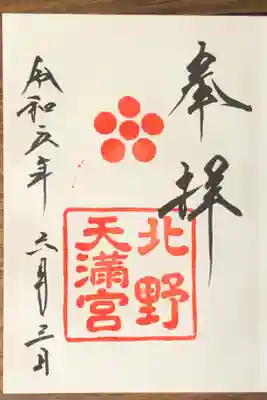 奉拝
北野
天満宮
令和五年 六月三日